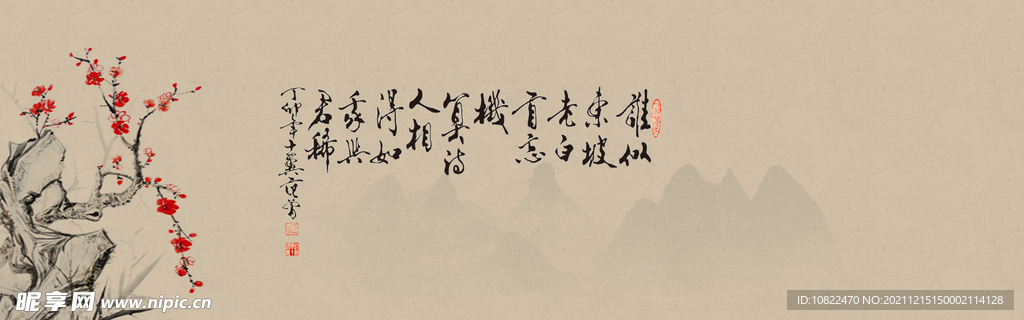 誰似
東坡
老白
首忘
機
算詩
人相
得如
我與
君稀
丁卯年十翼范曾
昵享网 www.nipic.cn
ID:10822470 NO:20211215150002114128